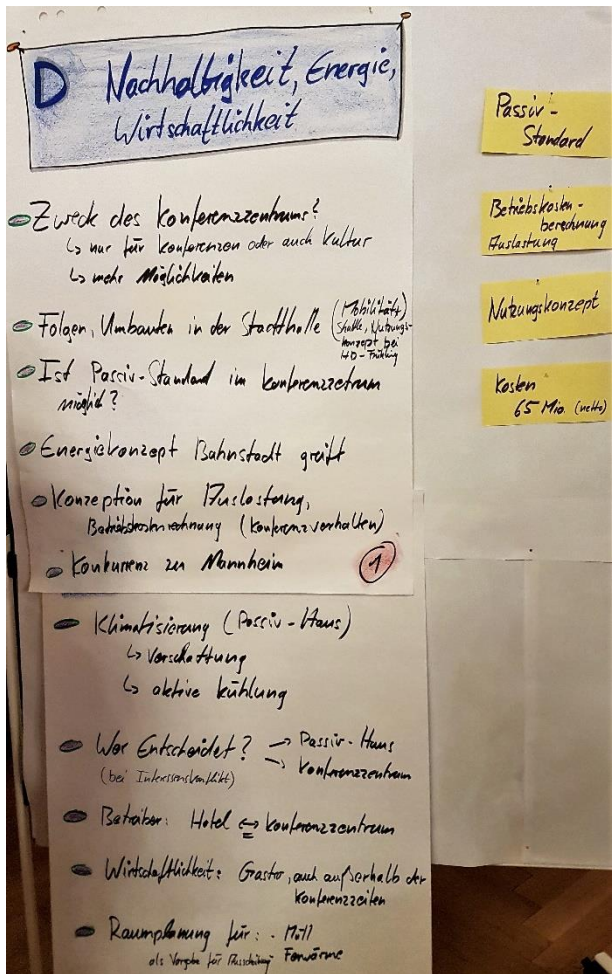 D Nachhaltigkeit, Energie,
Wirtschaftlichkeit
Zweck des Konferenzzentrums?
↳ nur für Konferenzen oder auch Kultur
↳ mehr Möglichkeiten
Folgen, Umbauten in der Stadthalle (Mobilität)
Ställe, Nutzungs-
konzept bei
HD-Frühling
Ist Passiv-Standard im Konferenzzentrum
möglich?
Energiekonzept Bahnstadt greift
Konzeption für Auslastung,
Betriebskostenrechnung (Konferenzverhalten)
Konkurrenz zu Mannheim
1
Klimatisierung (Passiv-Haus)
↳ Verschattung
↳ aktive Kühlung
Wer Entscheidet? → Passiv-Haus
(bei Interessenskonflikt) → Konferenzzentrum
Betreiber: Hotel ⇔ Konferenzzentrum
Wirtschaftlichkeit: Gastro, auch außerhalb der
Konferenzzeiten
Raumplanung für: - Müll
als Vorgabe für Ausschreibung Fernwärme
Passiv-
Standard
Betriebskosten-
berechnung
Auslastung
Nutzungskonzept
Kosten
65 Mio. (netto)